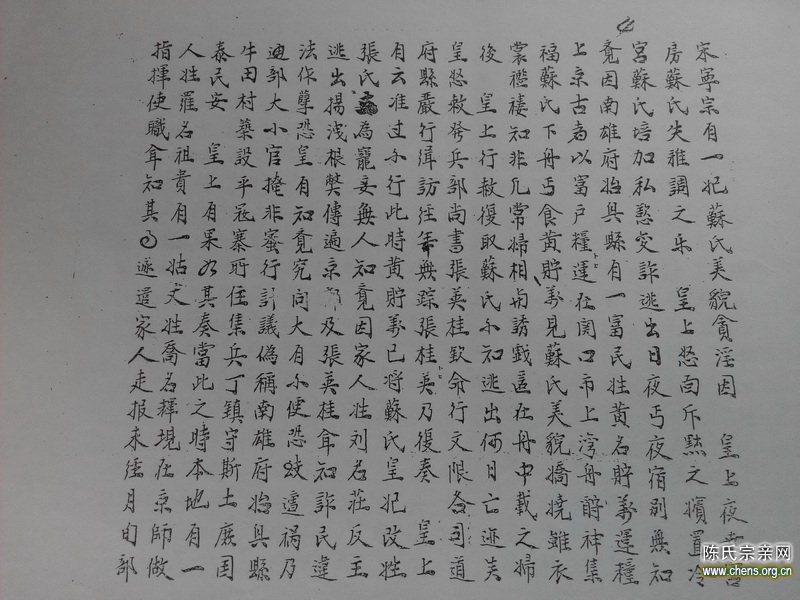 宋寧宗有一妃蘇氏美貌貪淫因　皇上夜
房蘇氏失雅調之樂　皇上怒而斥黜之擯置冷
宮蘇氏培加私慾变詐逃出日夜丐夜宿别無知
竟因南雄府始興縣有一富民姓黄名貯萬運糧
上京古者以富戶糧運在関口市上湾舟酧神集
福蘇氏下舟丐食黄貯萬見蘇氏美貌嬌撓雖衣
裳襤褸知非凡常婦相与誘戲匿在舟中載之婦
後　皇上行赦復取蘇氏不知逃出何日亡迹矣
皇怒敕発兵部尚書張英桂欽命行文限各司道
府縣嚴行緝訪経年無踪張桂英乃復奏　皇上
有云准过不行此時黄貯萬已將蘇氏皇妃改姓
張氏為寵妾無人知竟因家人姓刘名荘反主
逃出揚洩根弊傳遍京及張英桂耸知詐民違
法作孽恐皇有知竟究问大有不使恐致遺禍乃
廸部大小官掩非蜜行計議偽稱南雄府始興縣
牛田村築設平寇寨所住集兵丁鎮守斯土庶囯
泰民安　皇上有果如其奏當此之時本地有一
人姓羅名祖貴有一姑丈姓喬名輝現在京師做
指揮使職耸知其事遂遣家人走报未經月旬部
陈氏宗亲网
www.chens.org.cn